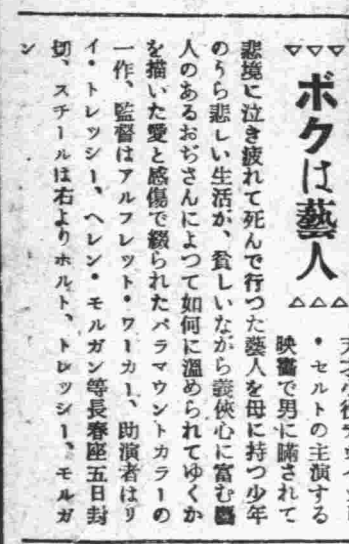 ボクは藝人
・セルトの主演する
映畫で男に瞞されて
悲境に泣き疲れて死んで行つた藝人を母に持つ少年
のうら悲しい生活が、貧しいながら義俠心に富む
人のあるおぢさんによつて如何に溫められてゆくか
を描いた愛と感傷で綴られたパラマウントカラーの
一作、監督はアルフレット・ワーカー、助演者はリ
イ・トレッシー、ヘレン・モルガン等長春座五日封
切、スチールは右よりホルト、トレッシー、モルガ
ン